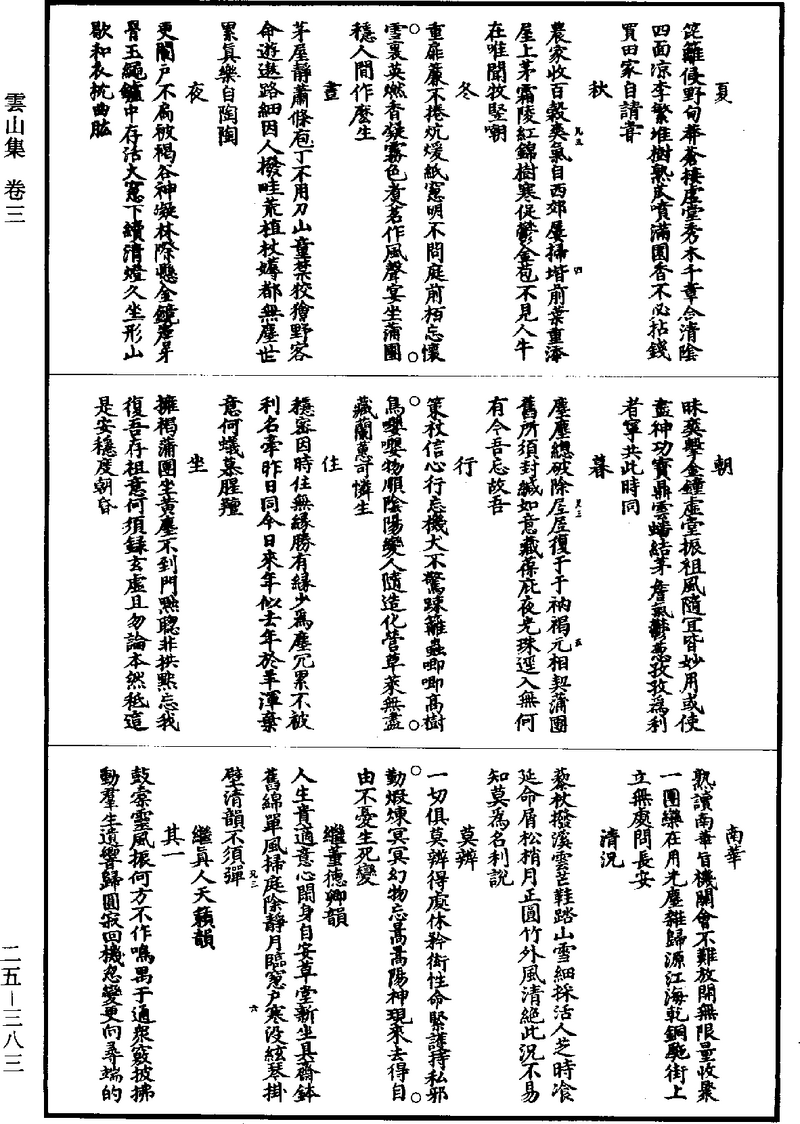 夏
笓籬侵野甸莽蒼接虛堂秀木千章合清陰
四面凉李繁堆樹熟瓜噴滿園香不必拈錢
買田家自請嘗
秋
農家收百穀爽氣自西郊屢掃堦前葉重添
屋上茅霜陵紅錦樹寒促鬱金苞不見人牛
在唯聞牧竪嘲
冬
重扉簾不捲炕煖紙窻明不問庭前栢忘懷
雪裏英燃香凝霧色煑茗作風聲宴坐蒲團
穩人間作麼生
晝
茅屋靜蕭條庖丁不用刀山童禁狡獪野客
命遊遨路細因人撥畦荒植杖薅都無塵世
累真樂自陶陶
夜
更闌戶不扃被褐谷神凝林際懸金鏡簷牙
罥玉繩鑪中存活火窻下續清燈久坐形山
歇和衣枕曲肱
朝
昧爽擊金鐘虛堂振祖風隨宜皆妙用或使
盡神功寶鼎雲蟠結茅詹氣鬱葱孜孜為利
者寧共此時同
暮
塵塵總破除屋屋復于于衲褐元相契蒲團
舊所須封緘如意藏葆庇夜光珠逕入無何
有今吾忘故吾
行
策杖信心行忘機犬不驚踈籬蟲唧唧高樹
鳥嚶嚶物順陰陽變人隨造化營草萊無盡
藏蘭蕙可憐生
住
穩密因時住無緣勝有緣少為塵冗累不被
利名牽昨日同今日來年似去年於羊渾棄
意何蟻慕腥羶
坐
擁褐蒲團坐黃塵不到門點聰非拱點忘我
復吾存祖意何須錄玄虛且勿論本然秪這
是安穩度朝昏
南華
熟讀南華旨機關會不難放開無限量收聚
一團欒在用光塵雜歸源江海乾銅駞街上
立無處問長安
清況
藜杖撥溪雲芒鞋踏山雪細採活人芝時飡
延命屑松梢月正圓竹外風清絕此況不易
知莫為名利說
莫辨
一切俱莫辨得處休矜衒性命緊護持私邪
勤煅煉冥冥幻物忘暠暠陽神現來去得自
由不憂生死變
繼董德卿韻
人生貴適意心閑身自安草堂新坐具齋鉢
舊綿單風掃庭除靜月臨窻戶寒沒絃琴掛
壁清韻不須彈
繼真人天籟韻
其一
鼓橐靈風振何方不作鳴禺于通衆竅披拂
動羣生遺響歸圓寂回機忽變更向尋端的
雲山集 卷三
二五－三八三